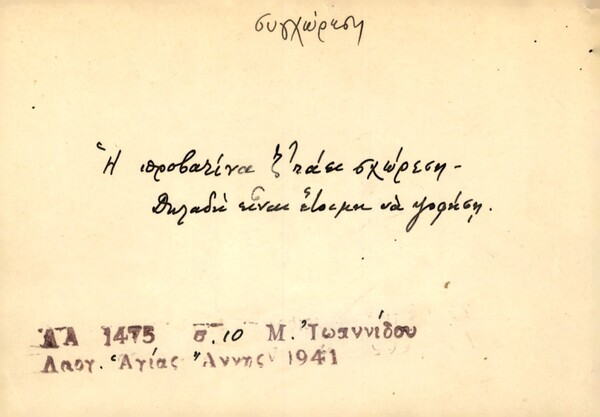 συγχώρεση
Ἡ προβατίνα ζ'τάει σχώρεση –
Δηλαδὴ εἶναι ἕτοιμη νὰ ψοφήσῃ.
ΛΑ 1475 σ. 10 Μ. Ἰωαννίδου
Λαογ. Ἁγίας Ἄννης 1941